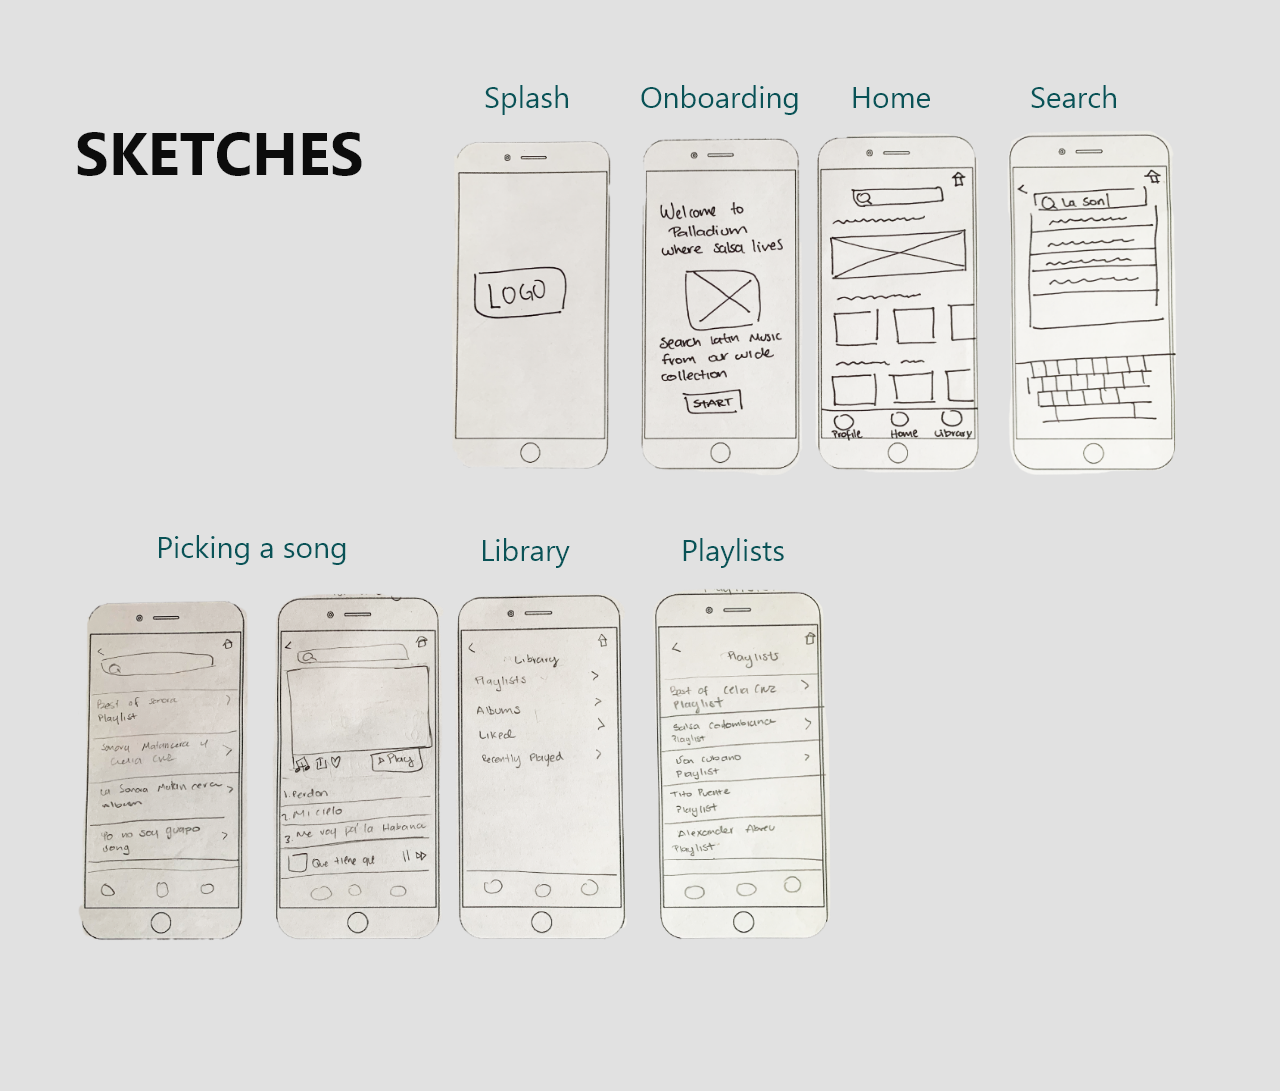 SKETCHES
Splash
Onboarding
Home
Search
LOGO
Welcome to
Palladium
where salsa lives
Search latin Music
from our wide
collection
START
Profile
Home
Library
La Son
Picking a song
Library
Playlists
Best of Sonora
Playlist
Sonora Matancera y
Celia Cruz
La Sonora Matancera
album
Yo no soy guapo
song
Play
1. Perdon
2. Mi cielo
3. Me voy pa' la Habana
Que tiene que
Library
Playlists
Albums
Liked
Recently Played
Playlists
Best of Celia Cruz
Playlist
Salsa Colombiana
Playlist
Son Cubano
Playlist
Tito Puente
Playlist
Alexander Abreu
Playlist